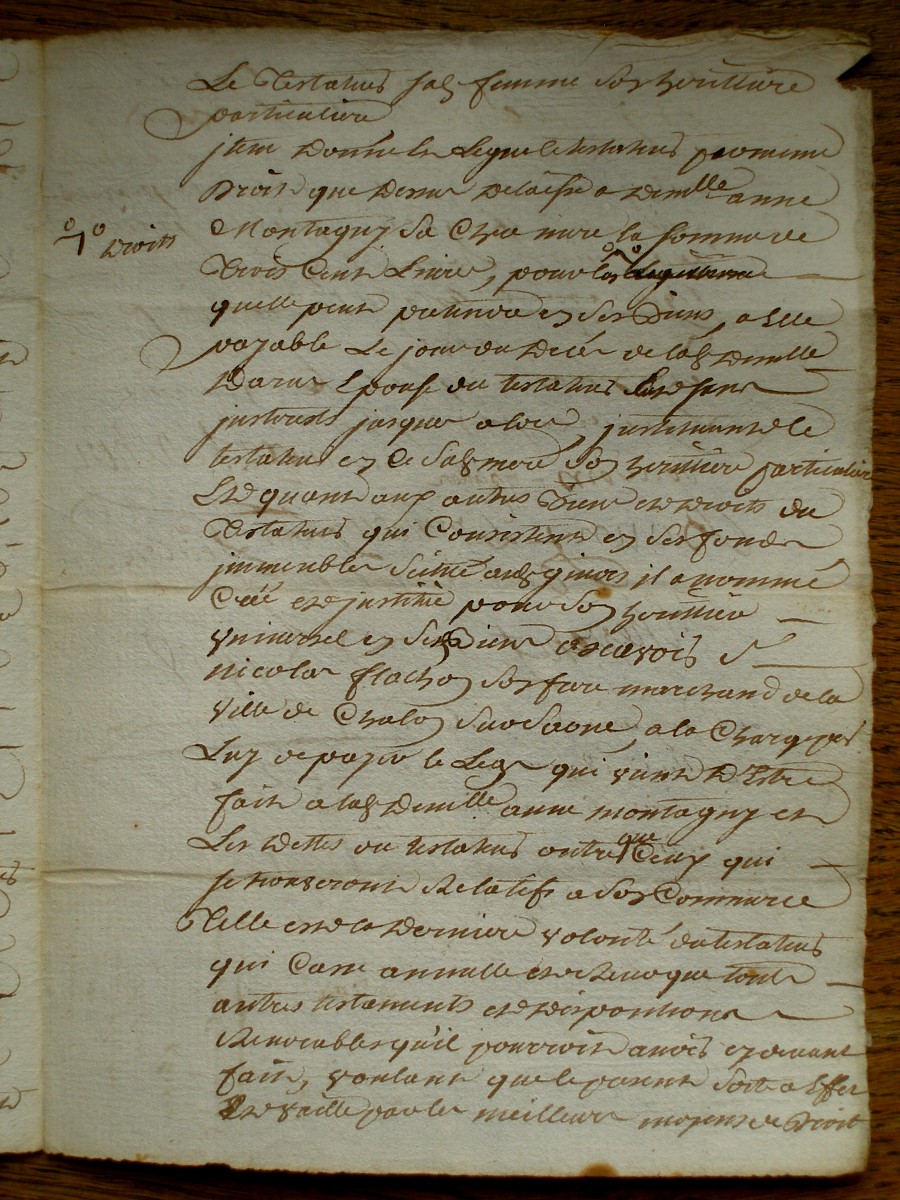 Le Testateur sad. femme son heritiere
particuliere
jtem donne et Legue le testateur par meme
Droit que dessus delaissé a Demlle anne
Montagny sa chere mere la somme de
Trois Cent Livres, pour les
droits
quelle peut pretendre en ses Biens, a Elle
payable Le jour du Deces de lad. Demlle
Epouse du testateur Et sans
jnterests jusques alors, jnstituant le
testateur en Ce sad. mere son heritiere particuliere
Et quant aux autres Biens et droits du
Testateur qui Consistent en ses fonds
jmmeubles scitué aud. givors il a nommé
Créé et jnstitué pour son heritier
universel en ses Biens scavoir Sr
nicolas flachon son frere marchand de la
ville de Chalon sur Saone, a la Charge par
Luy de payer le Legs qui vient d'Estre
fait a lad. Demlle anne montagny et
Les dettes du testateur autres que Ceux qui
se trouveront Relatifs a son Commerce
Telle est la derniere volonté du testateur
qui Casse annulle et Revoque tous
autres testaments et dispositions
Revocables qu'il pourroit avoir cy devant
fait, voulant que le present sorte a Effet
Et vaille par les meilleurs moyens de Droit